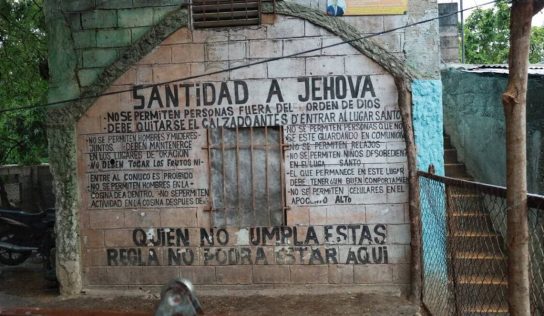 SANTIDAD A JEHOVA
-NO SE PERMITEN PERSONAS FUERA DEL ORDEN DE DIOS
-DEBE QUITARSE EL CALZADO ANTES D'ENTRAR AL LUGAR SANTO
-NO SE PERMITEN HOMBRES Y MUJERES
JUNTOS DEBEN MANTENERCE
EN LOS LUGARES DE ORACION
VO DEBEN TOCAR LOS FRUTOS NI
ENTRE AL CONUCO ES PROIBIDO
-NO SE PERMITEN HOMBRES EN LA
COSINA DE ADENTRO, NO SE PERMITEN
ACTIVIDAD EN LA COSINA DESPUES DE
NO SE PERMITEN PERSONAS QUE NO
SE ESTE GUARDANDO EN COMUNION
NO SE PERMITEN RELAJOS
NO SE PERMITEN NIÑOS DESOBEDIEN
EN EL LUGA SANTO
-EL QUE PERMANECE EN ESTE LUGAR
DEBE TENER BUEN COMPORTAMIEN
-NO SE PERMITEN CELULARES EN EL
APOCENTO ALTO
QUIEN NO CUMPLA ESTAS
REGLA NO PODRA ESTAR AQUI